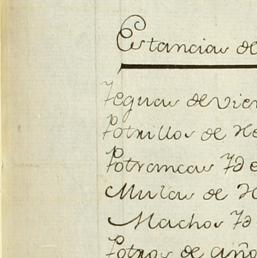 Estancia de
Yeguas de vien
Potrillos de He
Potrancas Yd e
Mulas de H
Machos Yd
Potros de año